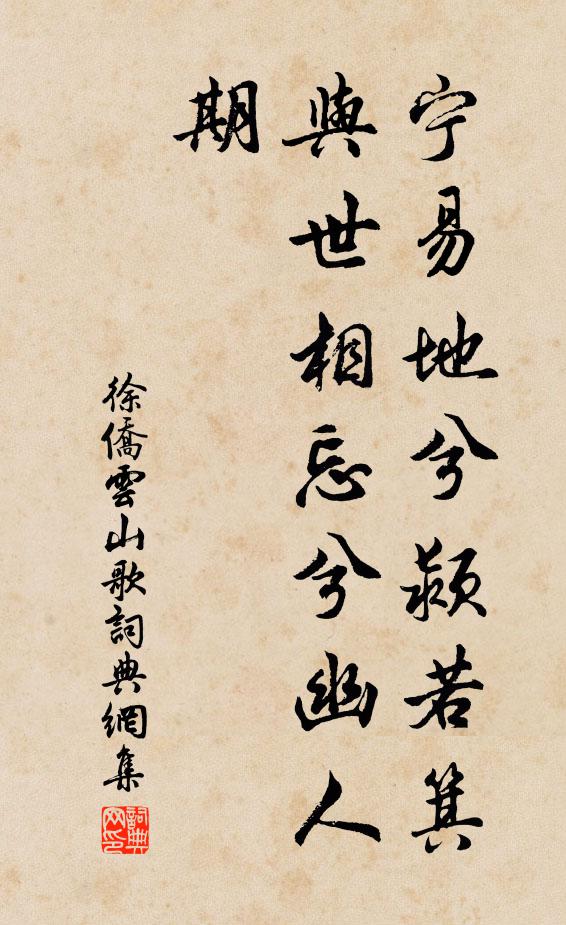 宁易地兮颍若箕
與世相忘兮幽人
期
徐僑雲山歌詞典網集
詞典网印